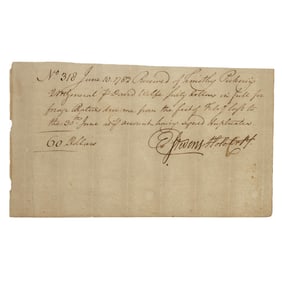 No 318 June 30. 1783 Received of Timothy Pickering
QrMrGeneral pr David Wolfe sixty dollars in full for
forage Rations due me from the first of last to
the 30th June as pr account having signed duplicates
60 Dollars